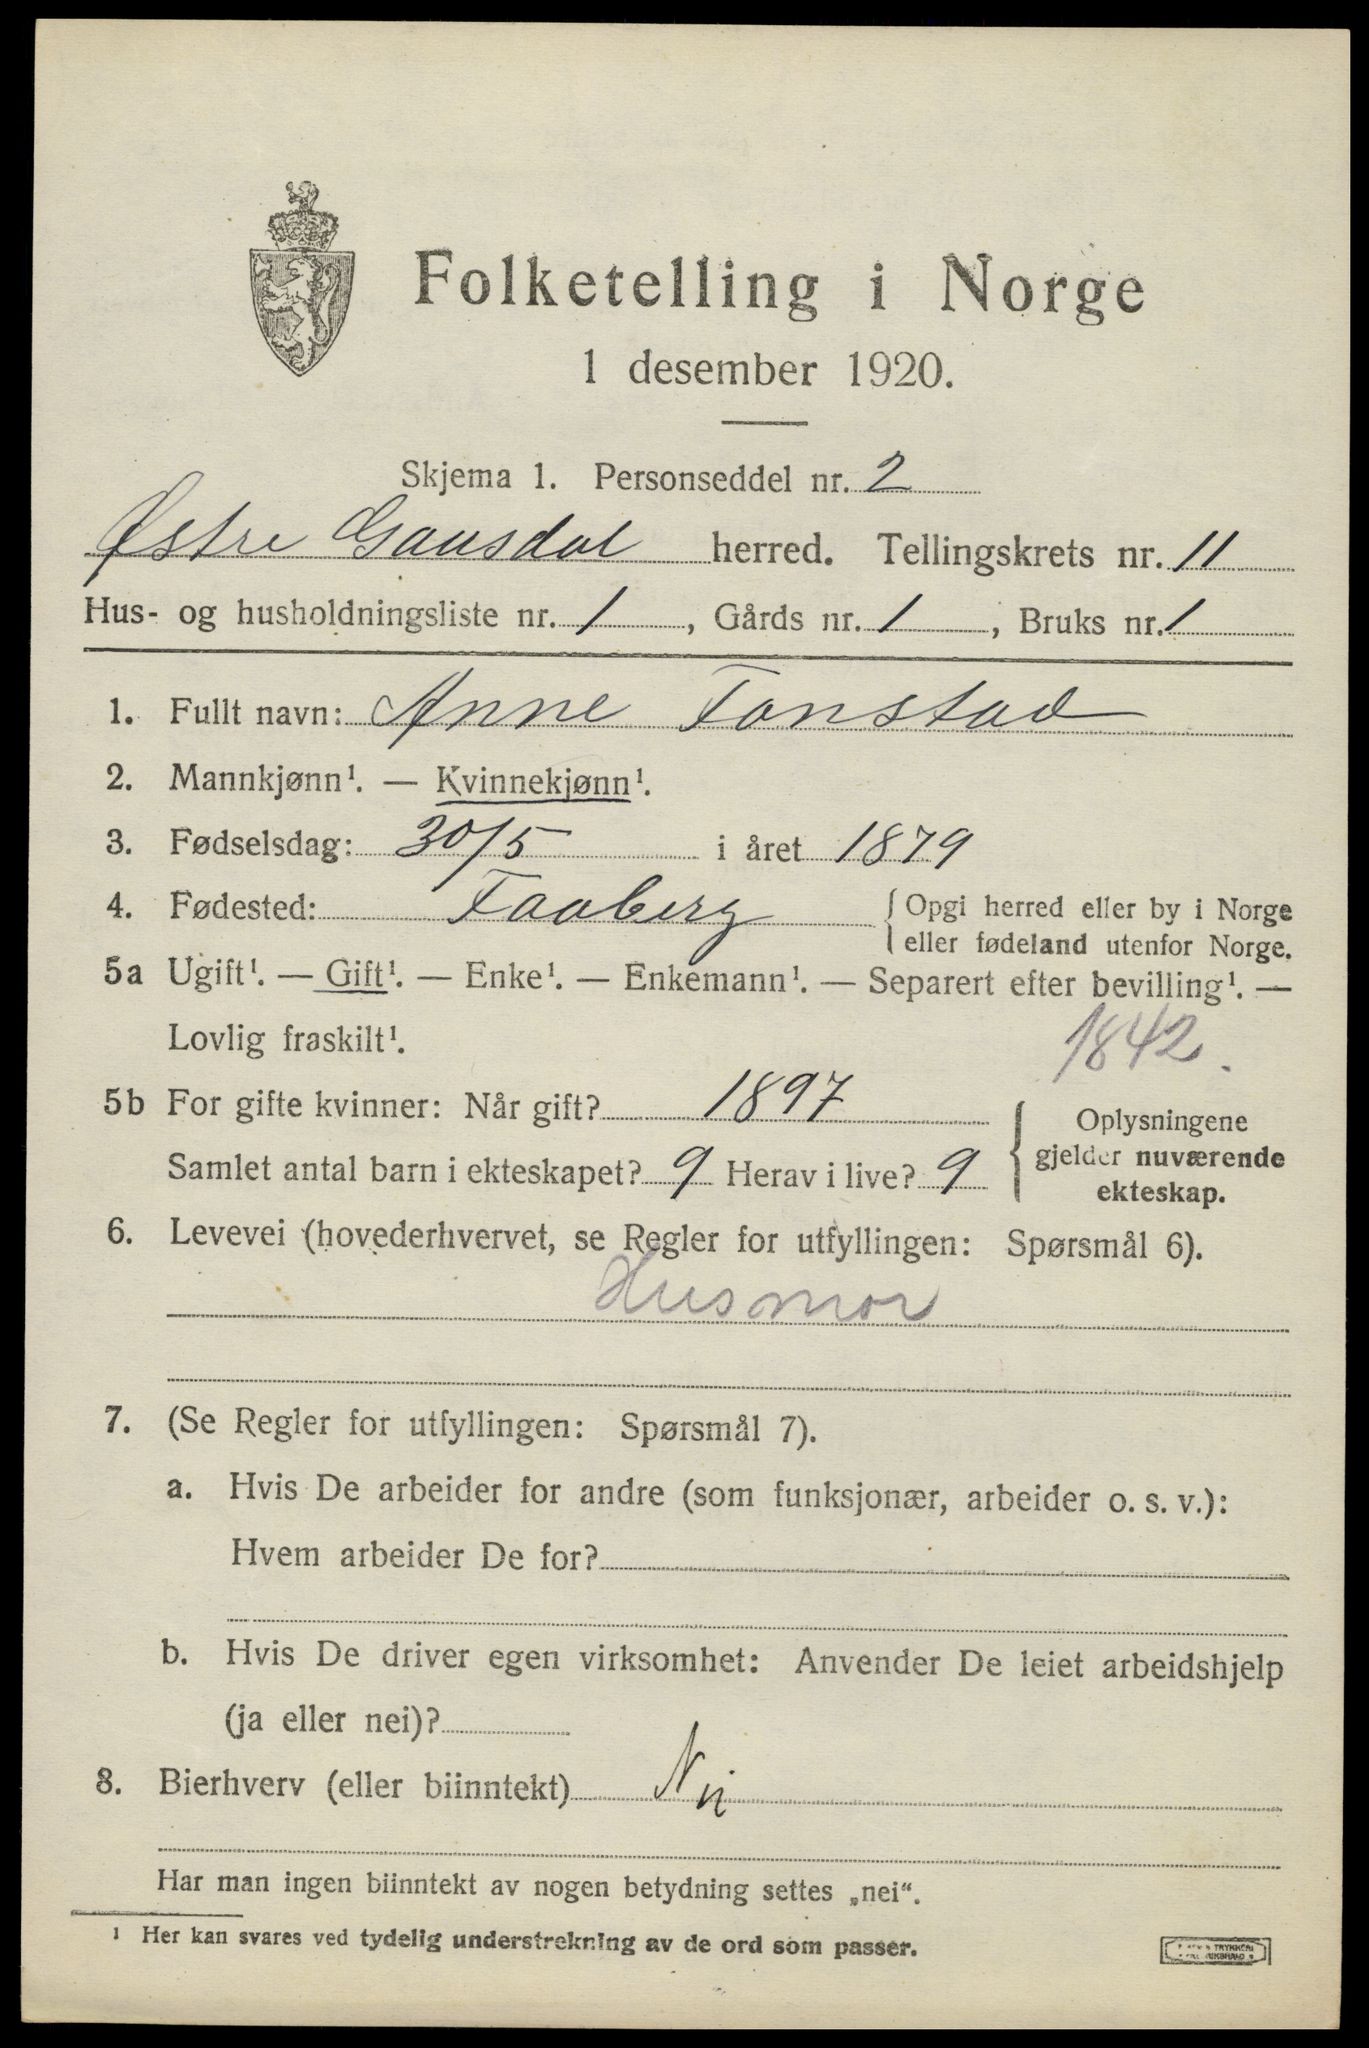 Folketelling i Norge
1 desember 1920.
Skjema 1. Personseddel nr. 2
Østre Gausdal herred. Tellingskrets nr. 11
Hus- og husholdningsliste nr. 1, Gårds nr. 1, Bruks nr. 1
1. Fullt navn: Anne Fonstad
2. Mannkjønn¹. — Kvinnekjønn¹.
3. Fødselsdag: 30/5 i året 1879
4. Fødested: Faaberg { Opgi herred eller by i Norge
eller fødeland utenfor Norge.
5a Ugift¹. — Gift¹. — Enke¹. — Enkemann¹. — Separert efter bevilling¹. —
Lovlig fraskilt¹.
1842.
5b For gifte kvinner: Når gift? 1897
Samlet antal barn i ekteskapet? 9 Herav i live? 9
{ Oplysningene
gjelder nuværende
ekteskap.
6. Levevei (hovederhvervet, se Regler for utfyllingen: Spørsmål 6).
Husmor
7. (Se Regler for utfyllingen: Spørsmål 7).
a. Hvis De arbeider for andre (som funksjonær, arbeider o. s. v.):
Hvem arbeider De for?
b. Hvis De driver egen virksomhet: Anvender De leiet arbeidshjelp
(ja eller nei)?
8. Bierhverv (eller biinntekt) Nei
Har man ingen biinntekt av nogen betydning settes „nei“.
¹ Her kan svares ved tydelig understrekning av de ord som passer.